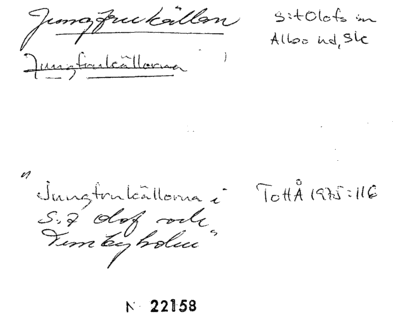 Jungfrukällan
S:t Olofs sn
Albo hd, Sk
Jungfrukällorna
"Jungfrukällorna i
S:t Olof och
"
ToHÅ 1975:116
N 22158